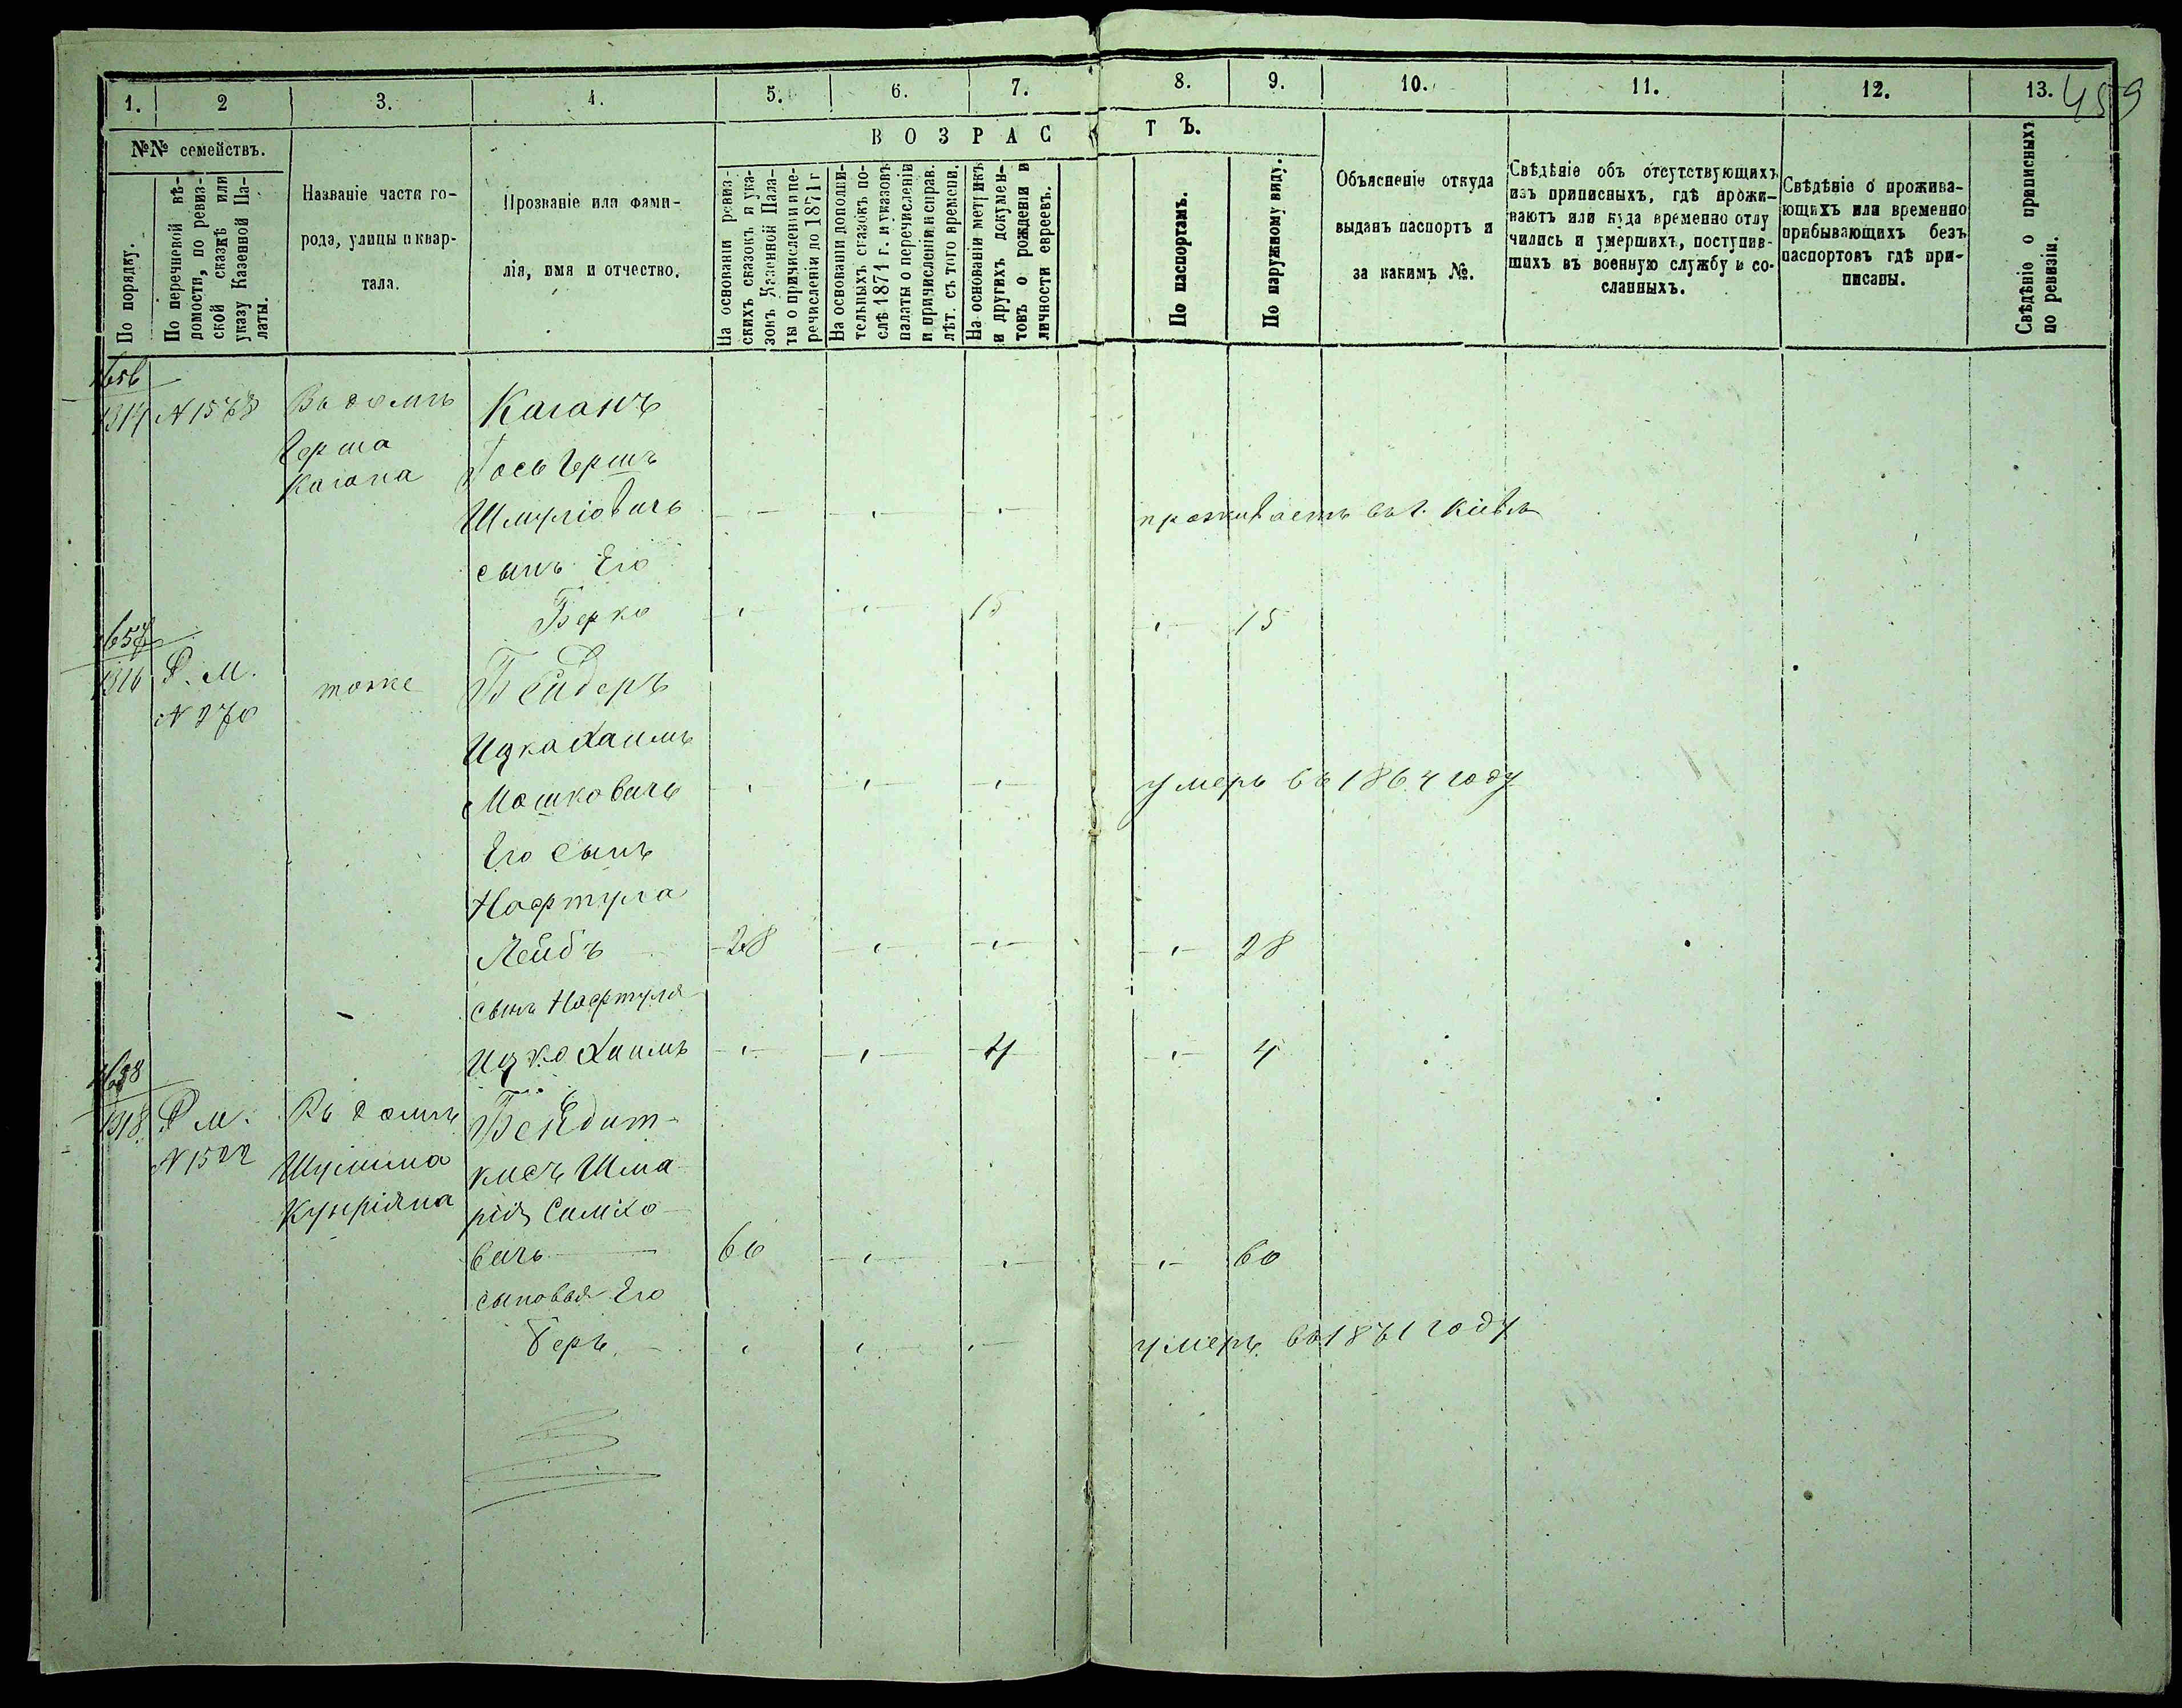 1. 2 3. 4. 5. 6. 7. 8. 9. 10. 11. 12. 13. 459
№№ семействъ.
По порядку.
По перечневой вѣ-
домости, по ревиз-
ской сказкѣ или
указу Казенной Па-
латы.
Названіе части го-
рода, улицы и квар-
тала.
Прозваніе или фами-
лія, имя и отчество.
ВОЗРАСТЪ.
На основаніи ревиз-
скихъ сказокъ и ука-
зокъ Казенной Пала-
ты о причисленіи и пе-
речисленіи до 1871 г
На основаніи дополни-
тельныхъ сказокъ по-
слѣ 1871 г. и указовъ
палаты о перечисленіи
и причисленіи и справ.
лѣт. съ того времени.
На основаніи метрикъ
и другихъ докумен-
товъ о рожденіи и
личности евреевъ.
По паспортамъ.
По наружному виду.
Объясненіе откуда
выданъ паспортъ и
за какимъ №.
Свѣдѣніе объ отсутствующихъ
изъ приписныхъ, гдѣ прожи-
ваютъ или куда временно отлу
чились и умершихъ, поступив-
шихъ въ военную службу и со-
сланныхъ.
Свѣдѣніе о прожива-
ющихъ или временно
прибывающихъ безъ
паспортовъ гдѣ при-
писаны.
Свѣдѣніо о приписныхъ
по ревизіи.
1656
1314 N 1578 Въ домѣ Каганъ
Герша Іось Гершъ
Кагана
Шмуліовичъ проживаетъ въ г. Кіевѣ
сынъ Его
Берко 15 15
1657
1316 Р. М. тоже Бендеръ
N 270
Ицка Хаимъ
Мошковичъ умеръ въ 1864 году
Его сынъ
Нафтула
Лейбъ 28 28
сынъ Нафтула
Ицко Хаимъ 4 4
1658
1318. Р М. Въ домѣ Бендит-
N 1522 Шулима кисъ Шма
рія Симхо
вичъ 60 60
сыновья Его
Беръ умеръ въ 1871 году